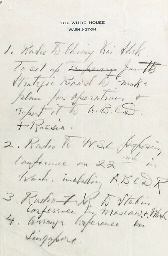 THE WHITE HOUSE
WASHINGTON
1. Radio to Chiang Kai Shek
to set up joint
strategic board to make
plans for operations &
report it to A B C D
+ Russia.
2. Radio to
conference on 22 in
Wash. including A B C D R
3. Radio to Stalin
conference by Moscow
4. Arrange conference in
Singapore.